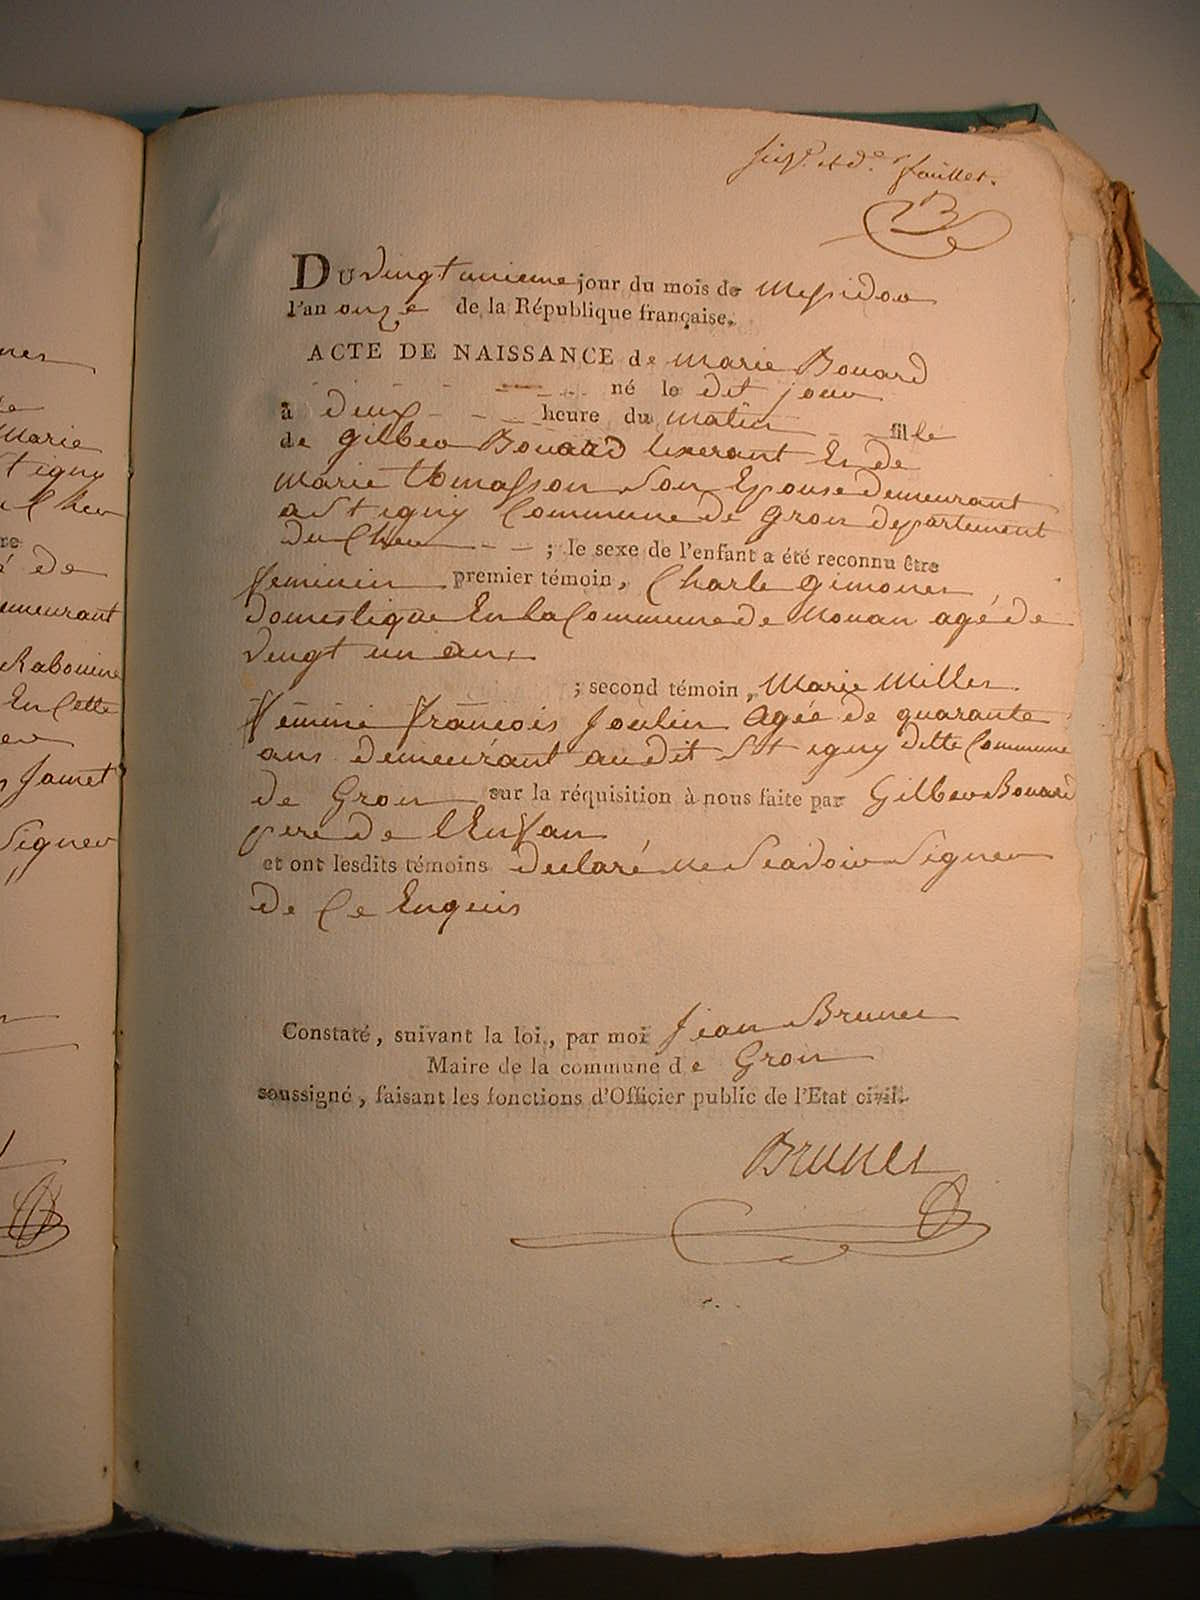 ner
Marie
St igny
Cher
re
é de
demeurant
Rabouine
En Cette
Jamet
Signer
et d.e feuillet.
B
DU vingt unieme jour du mois de Messidor
l'an onze de la République française.
ACTE DE NAISSANCE de Marie Bouard
né le dit jour
à deux heure du matin fille
de gilber Bouard tixerant En de
Marie thomasson Son Epouse demeurant
a St igny Commune de Gron departement
du Cher ; le sexe de l'enfant a été reconnu être
feminin premier témoin, Charle gimonet
domestique En la Commune de Nouan agé de
vingt un an
; second témoin, Marie Millet
femme francois Joulin agée de quarante
ans demeurant au dit St igny ditte Commune
de Gron sur la réquisition à nous faite par Gilber Bouard
pere de l'Enfan
et ont lesdits témoins declaré ne Scavoir Signer
de Ce Enquis
Constaté, suivant la loi, par moi Jean Brunet
Maire de la commune de Gron
soussigné, faisant les fonctions d'Officier public de l'Etat civil.
Brunet